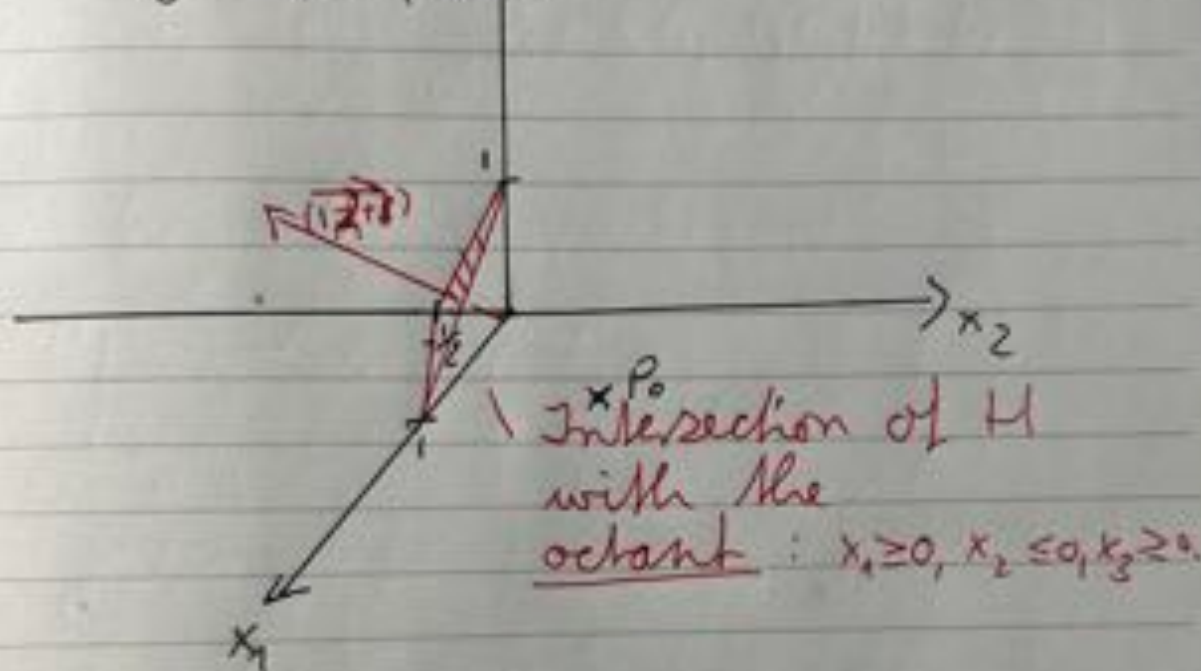 1
-1/2
x₂
1
P₀
Intersection of H
with the
octant : x₁≥0, x₂≤0, x₃≥0
x₁